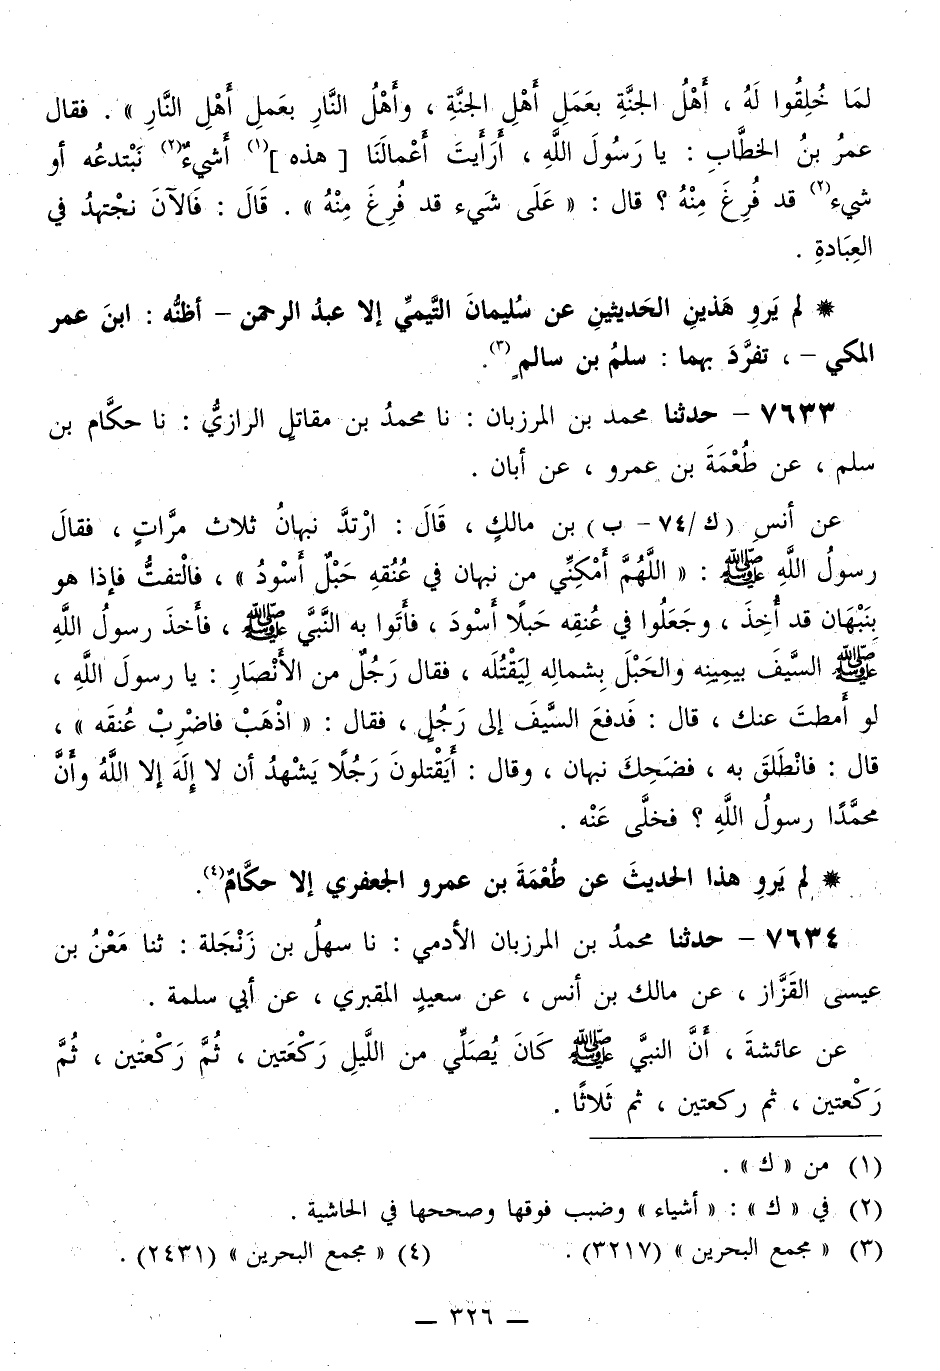 لمَا خُلِقُوا لَهُ ، أَهْلُ الجنَّةِ بعَمَلِ أَهْلِ الجنَّةِ ، وأَهْلُ النَّارِ بعَملِ أَهْلِ النَّارِ » . فقال
عمرُ بنُ الخطَّابِ : يا رَسُولَ اللَّهِ ، أَرَأَيتَ أَعْمالَنَا [ هذه ](١) أَشيءٌ(٢) نَبْتدعُه أو
شيء(٢) قد فُرِغَ مِنْهُ ؟ قال : « عَلَى شَيء قد فُرِغَ مِنْهُ » . قَالَ : فَالآنَ نجْتهدُ في
العِبَادةِ .
✷ لم يَروِ هَذينِ الحَديثينِ عن سُليمانَ التَّيميِّ إلا عبدُ الرحمن – أظنُّه : ابنَ عمر
المكي – ، تفرَّدَ بهما : سلمُ بن سالمٍ(٣).
٧٦٣٣ – حدثنا محمد بن المرزبان : نا محمدُ بن مقاتلٍ الرازيُّ : نا حكَّام بن
سلم ، عن طُعْمَةَ بن عمرو ، عن أبان .
عن أنسِ (ك/٧٤ – ب) بن مالكٍ ، قَالَ : ارْتدَّ نبهانُ ثلاث مرَّاتٍ ، فقالَ
رسولُ اللَّهِ ﷺ : « اللَّهُمَّ أَمْكِنِّي من نبهان في عُنُقهِ حَبْلٌ أَسْودُ » ، فالْتفتُّ فإذا هو
بِنَبْهَان قد أُخِذَ ، وجَعَلُوا في عُنقِه حَبلًا أَسْودَ ، فأَتَوا به النَّبيَّ ﷺ ، فأَخذَ رسولُ اللَّهِ
ﷺ السَّيفَ بيمِينِه والحَبْلَ بِشمالِه لِيَقْتُلَه ، فقال رَجُلٌ من الأَنْصَارِ : يا رسولَ اللَّهِ ،
لو أَمطتَ عنك ، قال : فَدفعَ السَّيفَ إلى رَجُلٍ ، فقال : « اذْهَبْ فاضْرِبْ عُنقَه » ،
قال : فانْطَلَقَ به ، فضَحِكَ نبهان ، وقال : أَيَقْتلونَ رَجُلًا يَشْهدُ أن لا إِلَهَ إلا اللَّهُ وأَنَّ
محمَّدًا رسولُ اللَّهِ ؟ فخلَّى عَنْه .
✷ لم يَروِ هذا الحديثَ عن طُعْمَةَ بن عمرو الجعفري إلا حكَّامٌ(٤).
٧٦٣٤ – حدثنا محمدُ بن المرزبان الأدمي : نا سهلُ بن زَنْجَلة : ثنا مَعْنُ بن
عيسى القَزَّاز ، عن مالك بن أنس ، عن سعيدٍ المقبري ، عن أبي سلمة .
عن عائشةَ ، أَنَّ النبيَّ ﷺ كَانَ يُصَلِّي من اللَّيلِ رَكْعَتين ، ثُمَّ رَكعتين ، ثُمَّ
رَكْعتين ، ثم ركعتين ، ثم ثَلاثًا .
(١) من « ك » .
(٢) في « ك » : « أشياء » وضبب فوقها وصححها في الحاشية .
(٣) « مجمع البحرين » (٣٢١٧) . (٤) « مجمع البحرين » (٢٤٣١) .
— ٣٢٦ —